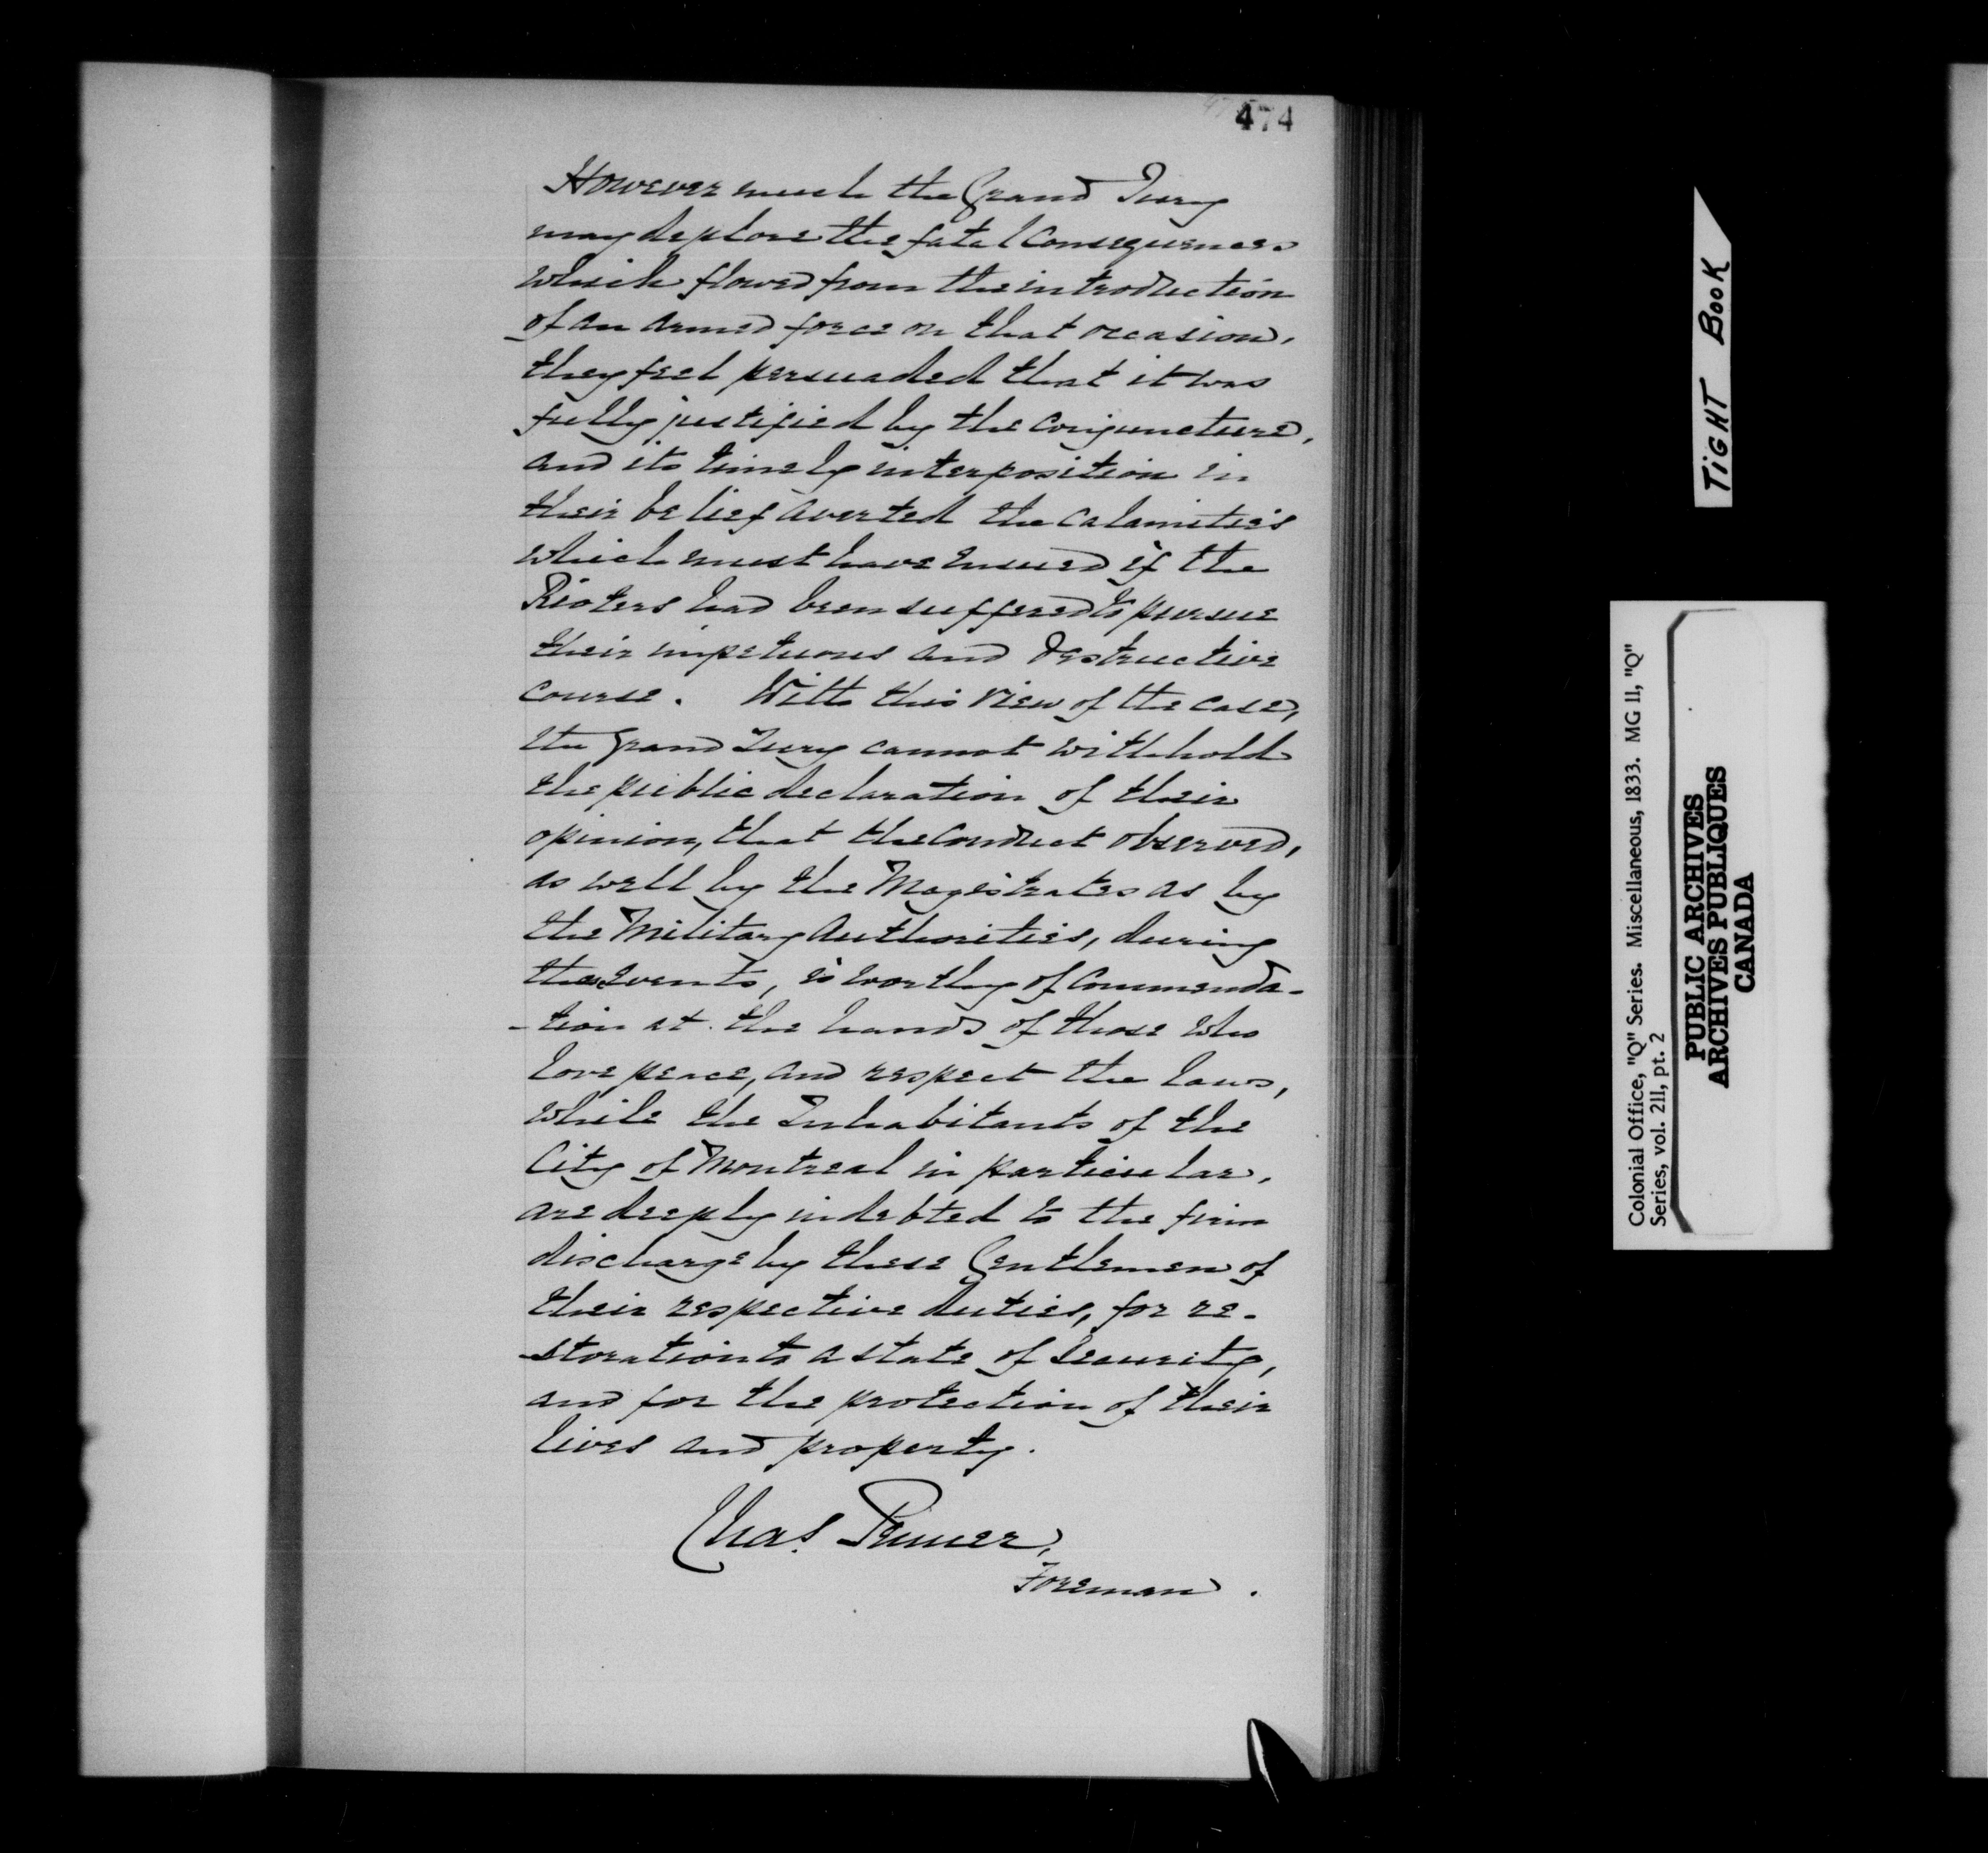 474
However much the Grand Jury
may deplore the fatal Consequences
which flowed from the introduction
of an armed force on that occasion,
they feel persuaded that it was
fully justified by the conjuncture,
and its timely interposition in
their belief averted the calamities
which must have ensued if the
Rioters had been suffered to pursue
their impetuous and destructive
course. With this view of the case,
the Grand Jury cannot withhold
the public declaration of their
opinion, that the conduct observed,
as well by the Magistrates as by
the Military Authorities, during
these events, is worthy of Commenda-
-tion at the hands of those who
love peace, and respect the laws,
while the Inhabitants of the
City of Montreal in particular,
are deeply indebted to the firm
discharge by these Gentlemen of
their respective duties, for re-
-storation to a state of Security,
and for the protection of their
lives and property.
Chas. Penner,
Foreman.
TIGHT BOOK
Colonial Office, "Q" Series. Miscellaneous, 1833. MG 11, "Q"
Series, vol. 211, pt. 2
PUBLIC ARCHIVES
ARCHIVES PUBLIQUES
CANADA